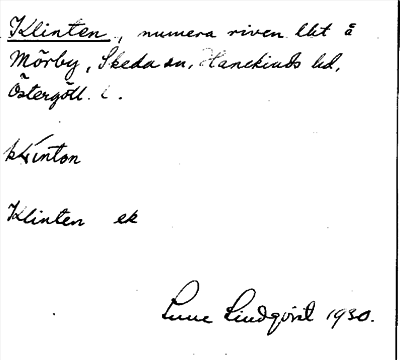 Klinten, numera riven lht å
Mörby, Skeda sn, Hanekinds hd,
Östergötl. l.
klinton
Klinten ek
Sune Lindqvist 1930.